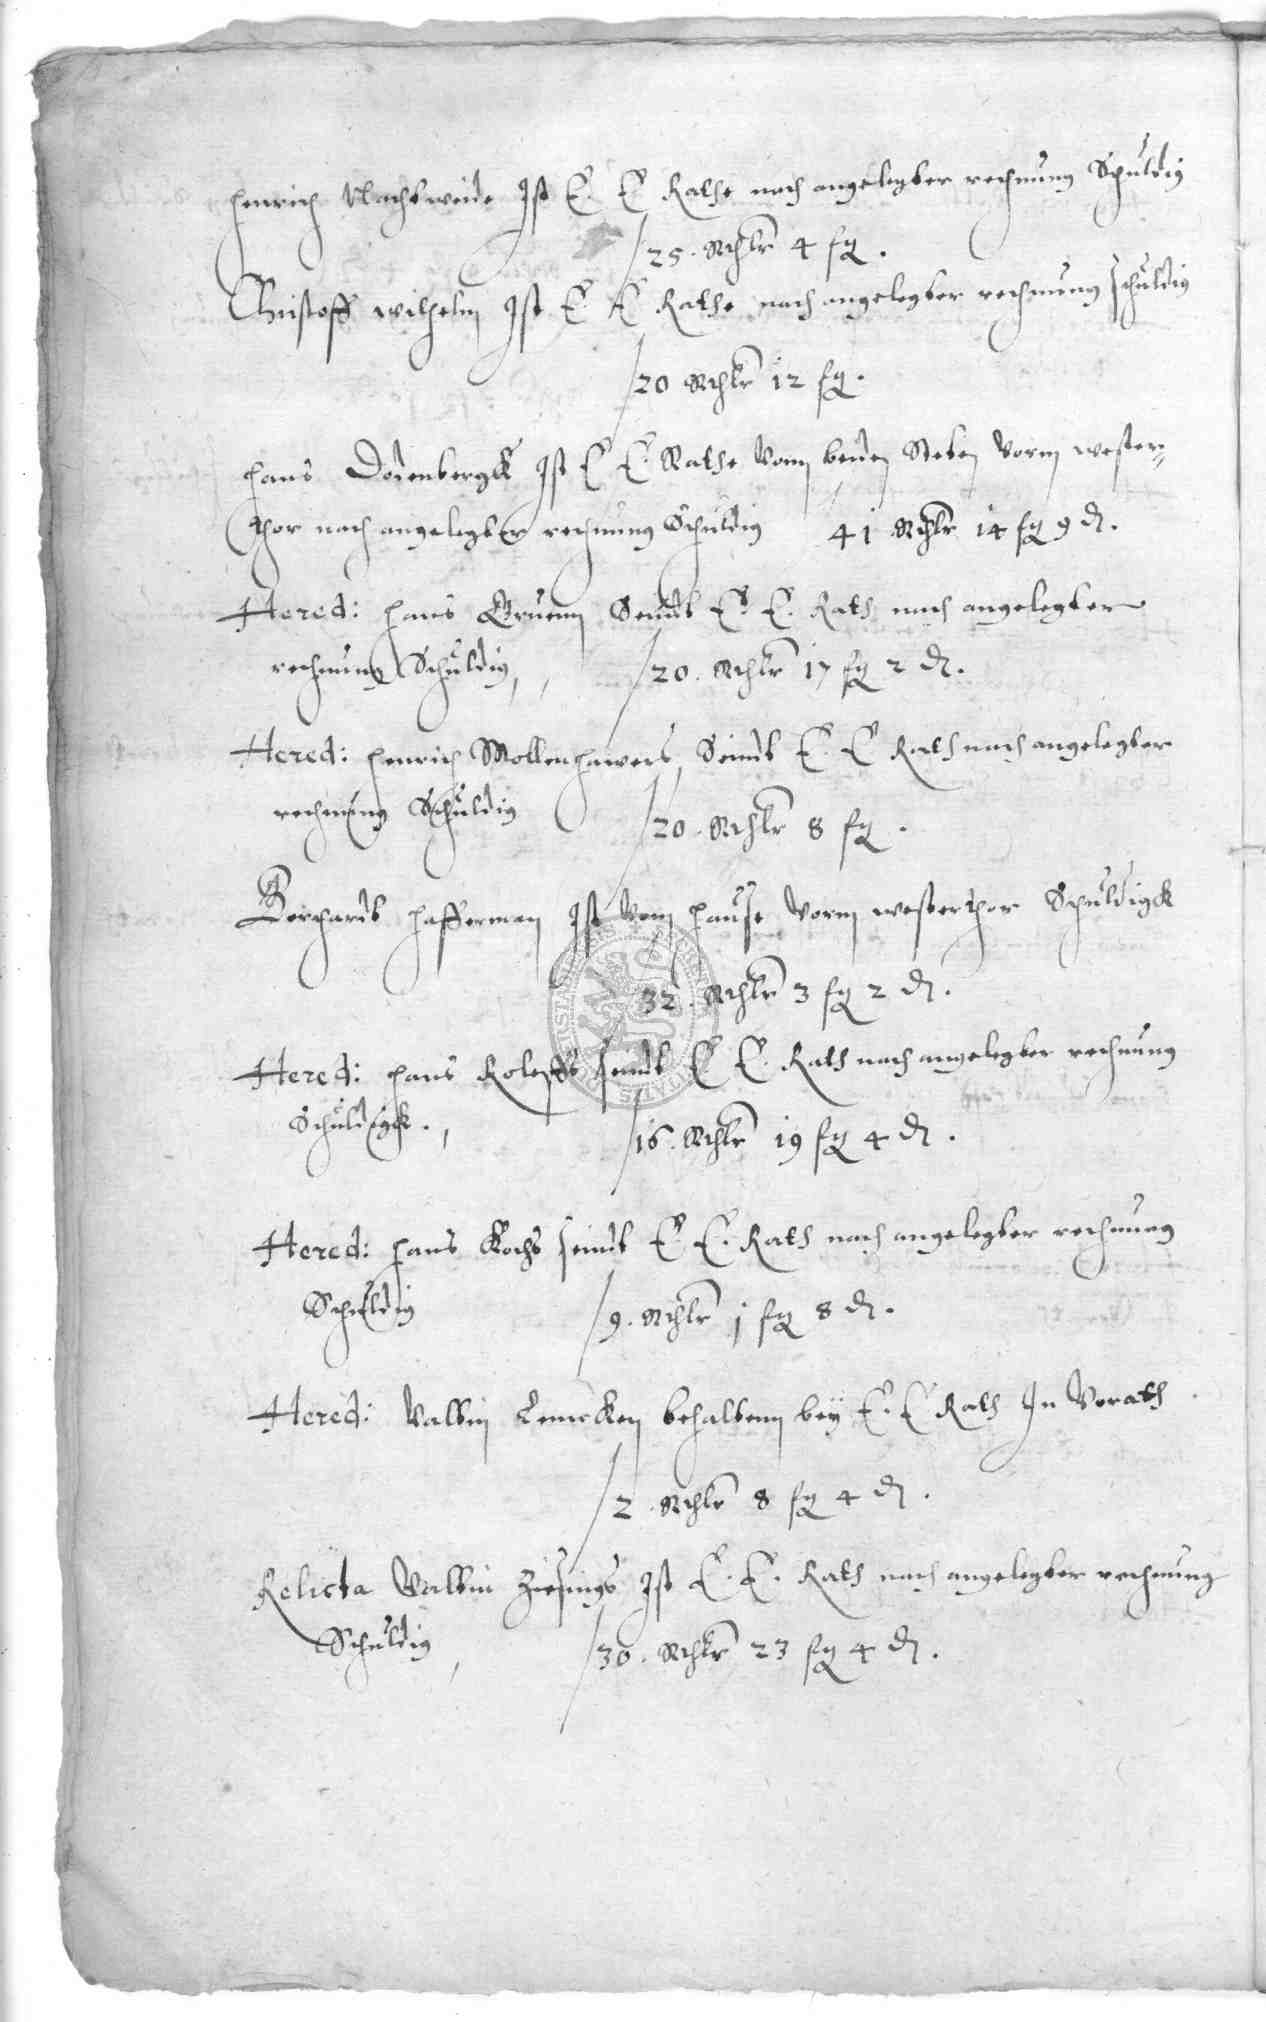 Henrich Nachtweide Ist E. E Rathe nach angelegter rechnung Schuldig
25. Rthlr 4 sg.
Christoff Wilhelm Ist E. E Rathe nach angelegter rechnung schuldig
20 Rthlr 12 sg.
Hans Dörenbergk Ist E E. Rathe vom beiden vorm wester-
thor nach angelegter rechnung Schuldig 41 Rthlr 14 sg 9 d.
Hered: Hans Gruenn Seindt E. E. Rath nach angelegter
rechnung Schuldig, 20. Rthlr 17 sg 2 d.
Hered: Henrich Mollenhawers, Seindt E. E Rath nach angelegter
rechnung Schuldig 20. Rthlr 8 sg.
Gerhardt Hafferman Ist vom Hause vorm westerthor Schuldigk
32. Rthlr 3 sg 2 d.
Hered: Hans Roleffs seindt E E. Rath nach angelegter rechnung
Schuldigk. 16. Rthlr 19 sg 4 d.
Hered: Hans Kochs seindt E E. Rath nach angelegter rechnung
Schuldig 9. Rthlr j sg 8 d.
Hered: Valtin Lemcken behaltenn bey E. E Rath In Vorath
2. Rthlr 8 sg 4 d.
Relicta Valtin Ziesings Ist E. E. Rath nach angelegter rechnung
Schuldig, 30. Rthlr 23 sg 4 d.